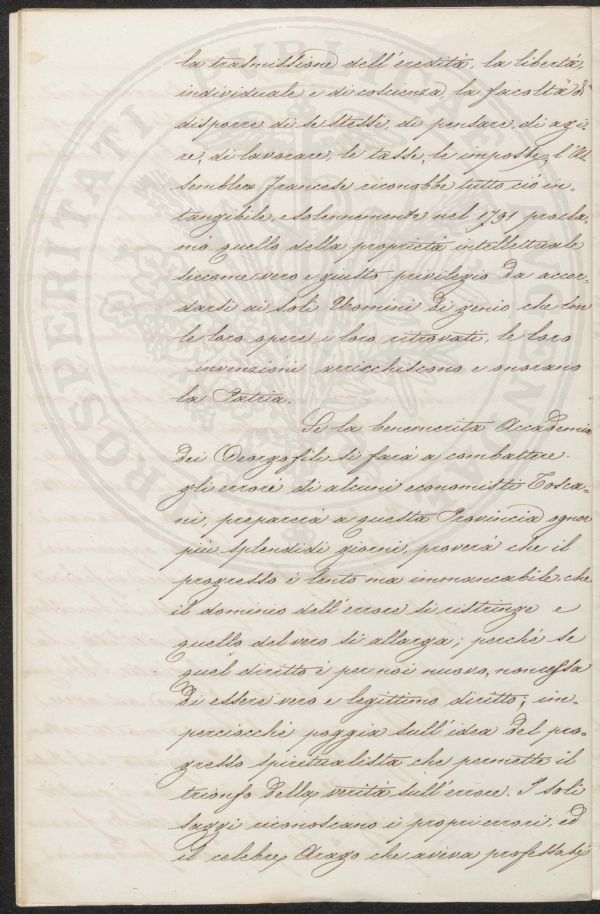 la trasmissione dell'eredità, la libertà
individuale e di coscienza la facoltà di
disporre di se stessi, di pensare, di agi=
re, di lavorare, le tasse, le imposte, l'As
semblea Francese riconobbe tutto ciò in=
tangibile, e solennemente nel 1791 procla=
mò quello della proprietà intellettuale
siccome vero e giusto privilegio da accor=
darsi ai soli Uomini di genio che con
le loro opere, i loro ritrovati, le loro
invenzioni arricchiscono e onorano
la Patria.
Se la benemerita Accademia
dei Georgofili si farà a combattere
gli errori di alcuni economisti Tosca=
ni, preparerà a questa Provincia ognor
più splendidi giorni, proverà che il
progresso è lento ma immancabile, che
il dominio dell'errore si ristringe e
quello del vero si allarga; perchè se
quel diritto è per noi nuovo, non cessa
di essere vero e legittimo diritto; im=
perciocchè poggia sull'idea del pro=
gresso spiritualista che permette il
trionfo della verità sull'errore. I soli
saggi riconoscano i propri errori, ed
il celebre Arago che aveva professato
PROSPERITATI PUBLICAE AUGENDAE